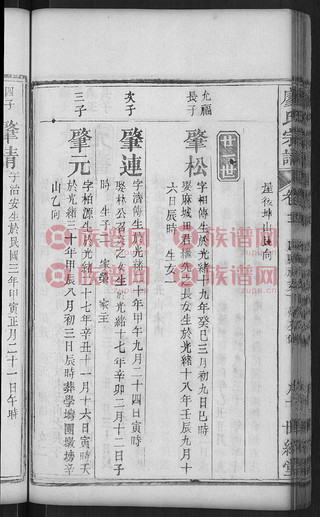 廖氏宗譜
卷
世綵堂
星後坤山艮向
廿世
允福
長子
肇松
字相傳生於光緒十九年癸巳三月初九日巳時
娶麻城田君 先 長女生於光緒十八年壬辰九月十
六日辰時 生女
次子
肇連
字濟傳生於光緒二十年甲午九月二十四日寅時
娶林公召 之 生於光緒十七年辛卯二月十二日子
時 生子二 家 家主
三子
肇元
字柏源生於光緒 十七年辛丑十一月十六日寅時
於光緒三十年甲辰八月初三日辰時葬學塆團墩塝辛
山乙向
四子
肇靖
字治安生於民國三年甲寅正月二十一日午時
族谱网